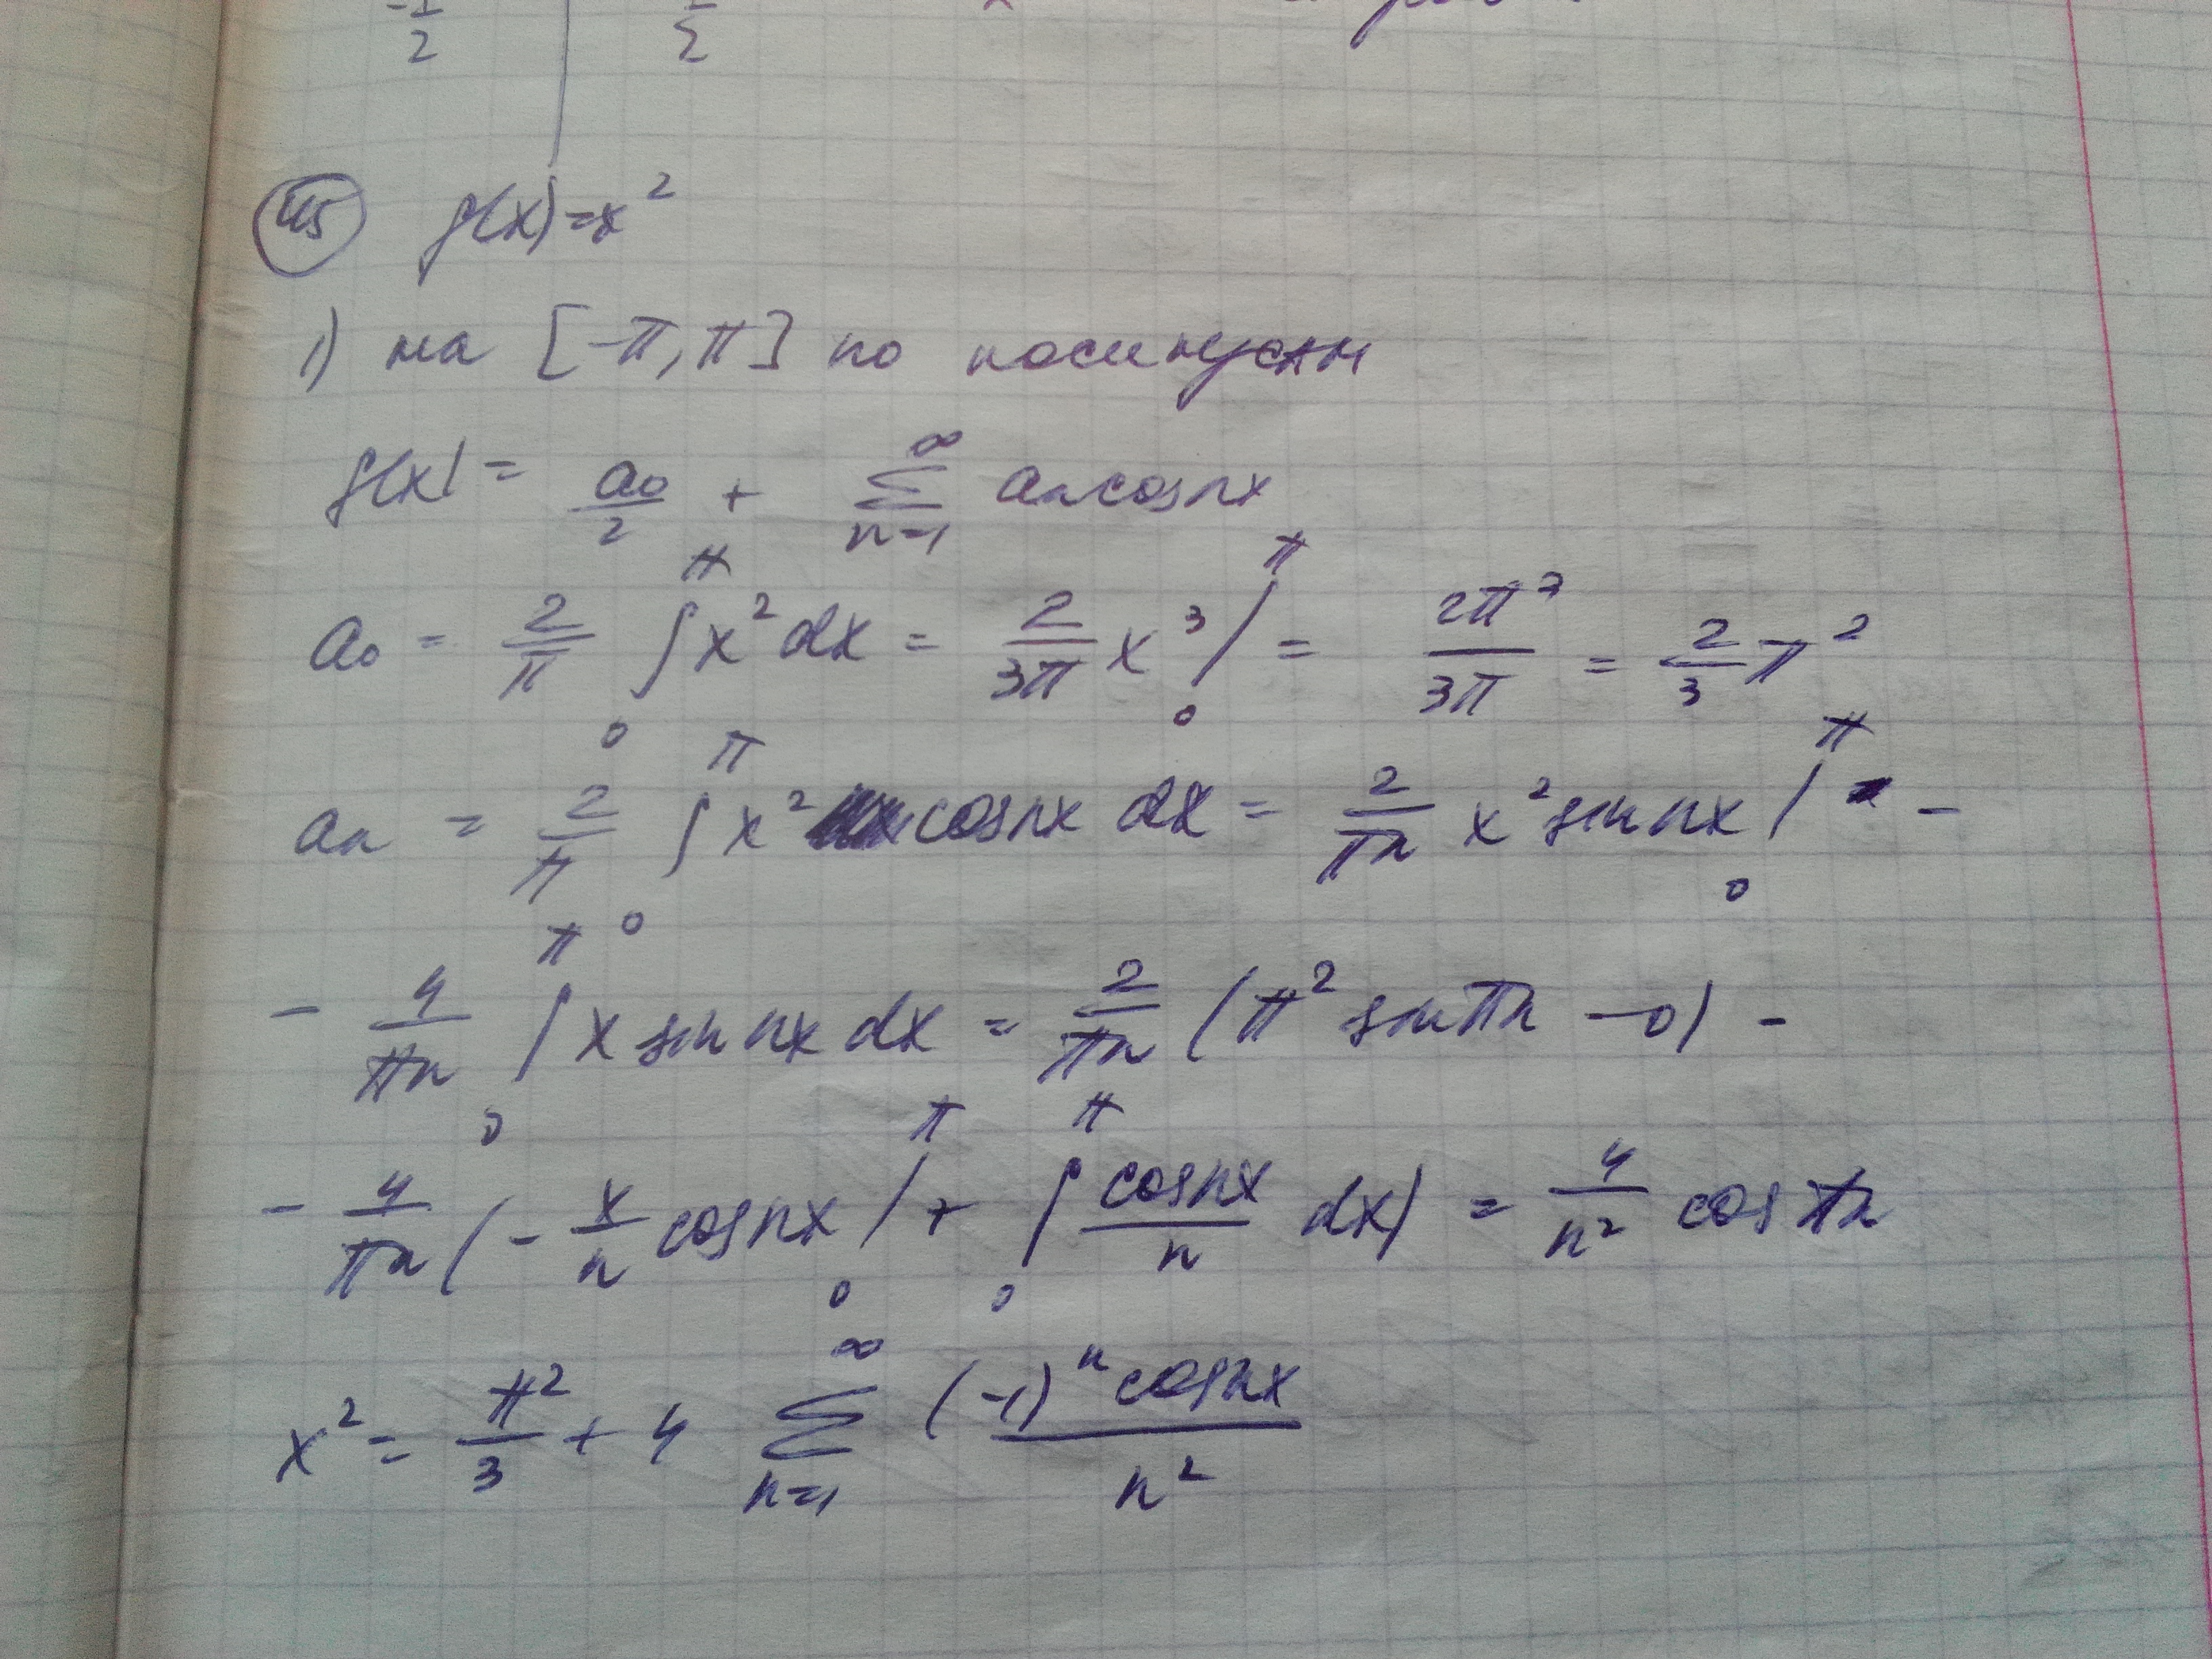 -1/2 1/2
45 f(x)=x²
1) на [-π, π] по косинусам
f(x) = a₀/2 + ∑ₙ₌₁^∞ aₙcosnx
a₀ = 2/π ∫₀^π x²dx = 2/(3π) x³|₀^π = 2π³/(3π) = 2/3 π²
aₙ = 2/π ∫₀^π x² cosnx dx = 2/(πn) x² sin nx |₀^π -
- 4/(πn) ∫₀^π x sin nx dx = 2/(πn) (π² sin πn - 0) -
- 4/(πn) (- x/n cosnx |₀^π + ∫₀^π cosnx/n dx) = 4/n² cos πn
x² = π²/3 + 4 ∑ₙ₌₁^∞ (-1)ⁿ cosnx / n²